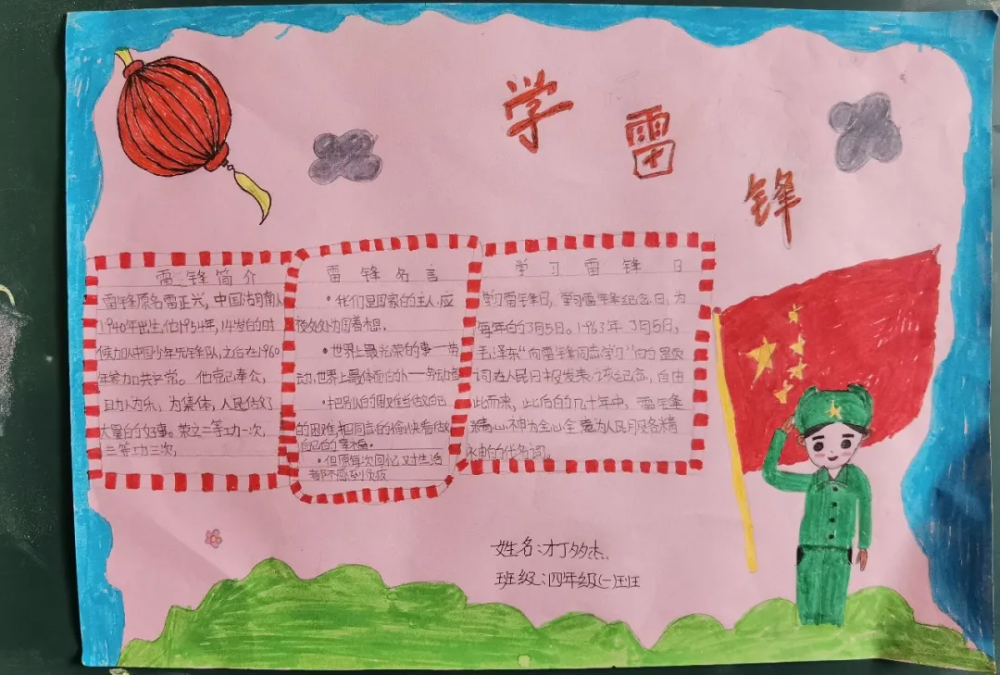 学雷锋
雷锋简介
雷锋原名雷正兴，中国湖南人
1940年出生，他1954年，14岁的时
候加队中国少年先锋队，之后在1960
年参加共产党。他克己奉公，
助人为乐，为集体，人民做了
大量的好事。荣立二等功一次，
三等功三次，
雷锋名言
·我们是国家的主人，应
该处处为国着想。
·世界上最光荣的事一劳
动，世界上最体面的人一劳动者
·把别人的困难当做自己
的困难，把同志的愉快看做
自己的幸福。
·但愿每次回忆，对生活
都不感到负疚
学习雷锋日
学习雷锋日，学习雷锋纪念日，为
每年的3月5日。1963年3月5日，
毛泽东“向雷锋同志学习”的题
词在人民日报发表，该纪念，自由
此而来，此后的几十年中，雷锋
精神为全心全意为人民服务精
神的代名词。
姓名：才多杰
班级：四年级(一)班